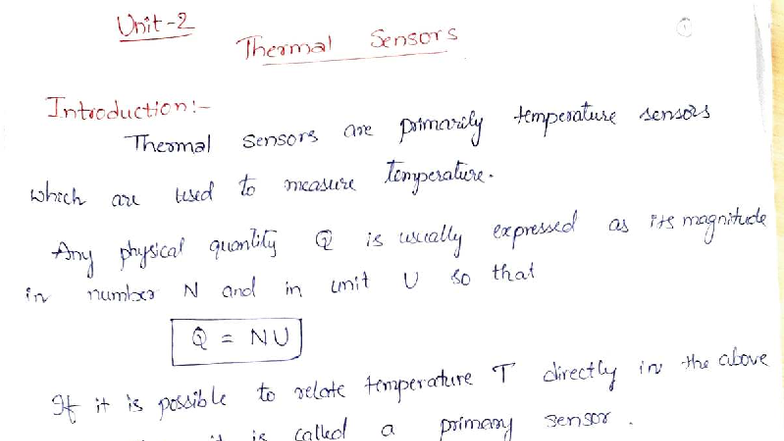 Unit-2
Thermal Sensors
Introduction:-
Thermal sensors are primarily temperature sensors
which are used to measure temperature.
Any physical quantity Q is usually expressed as its magnitude
in number N and in unit U so that
Q = NU
If it is possible to relate temperature T directly in the above
it is called a primary sensor.